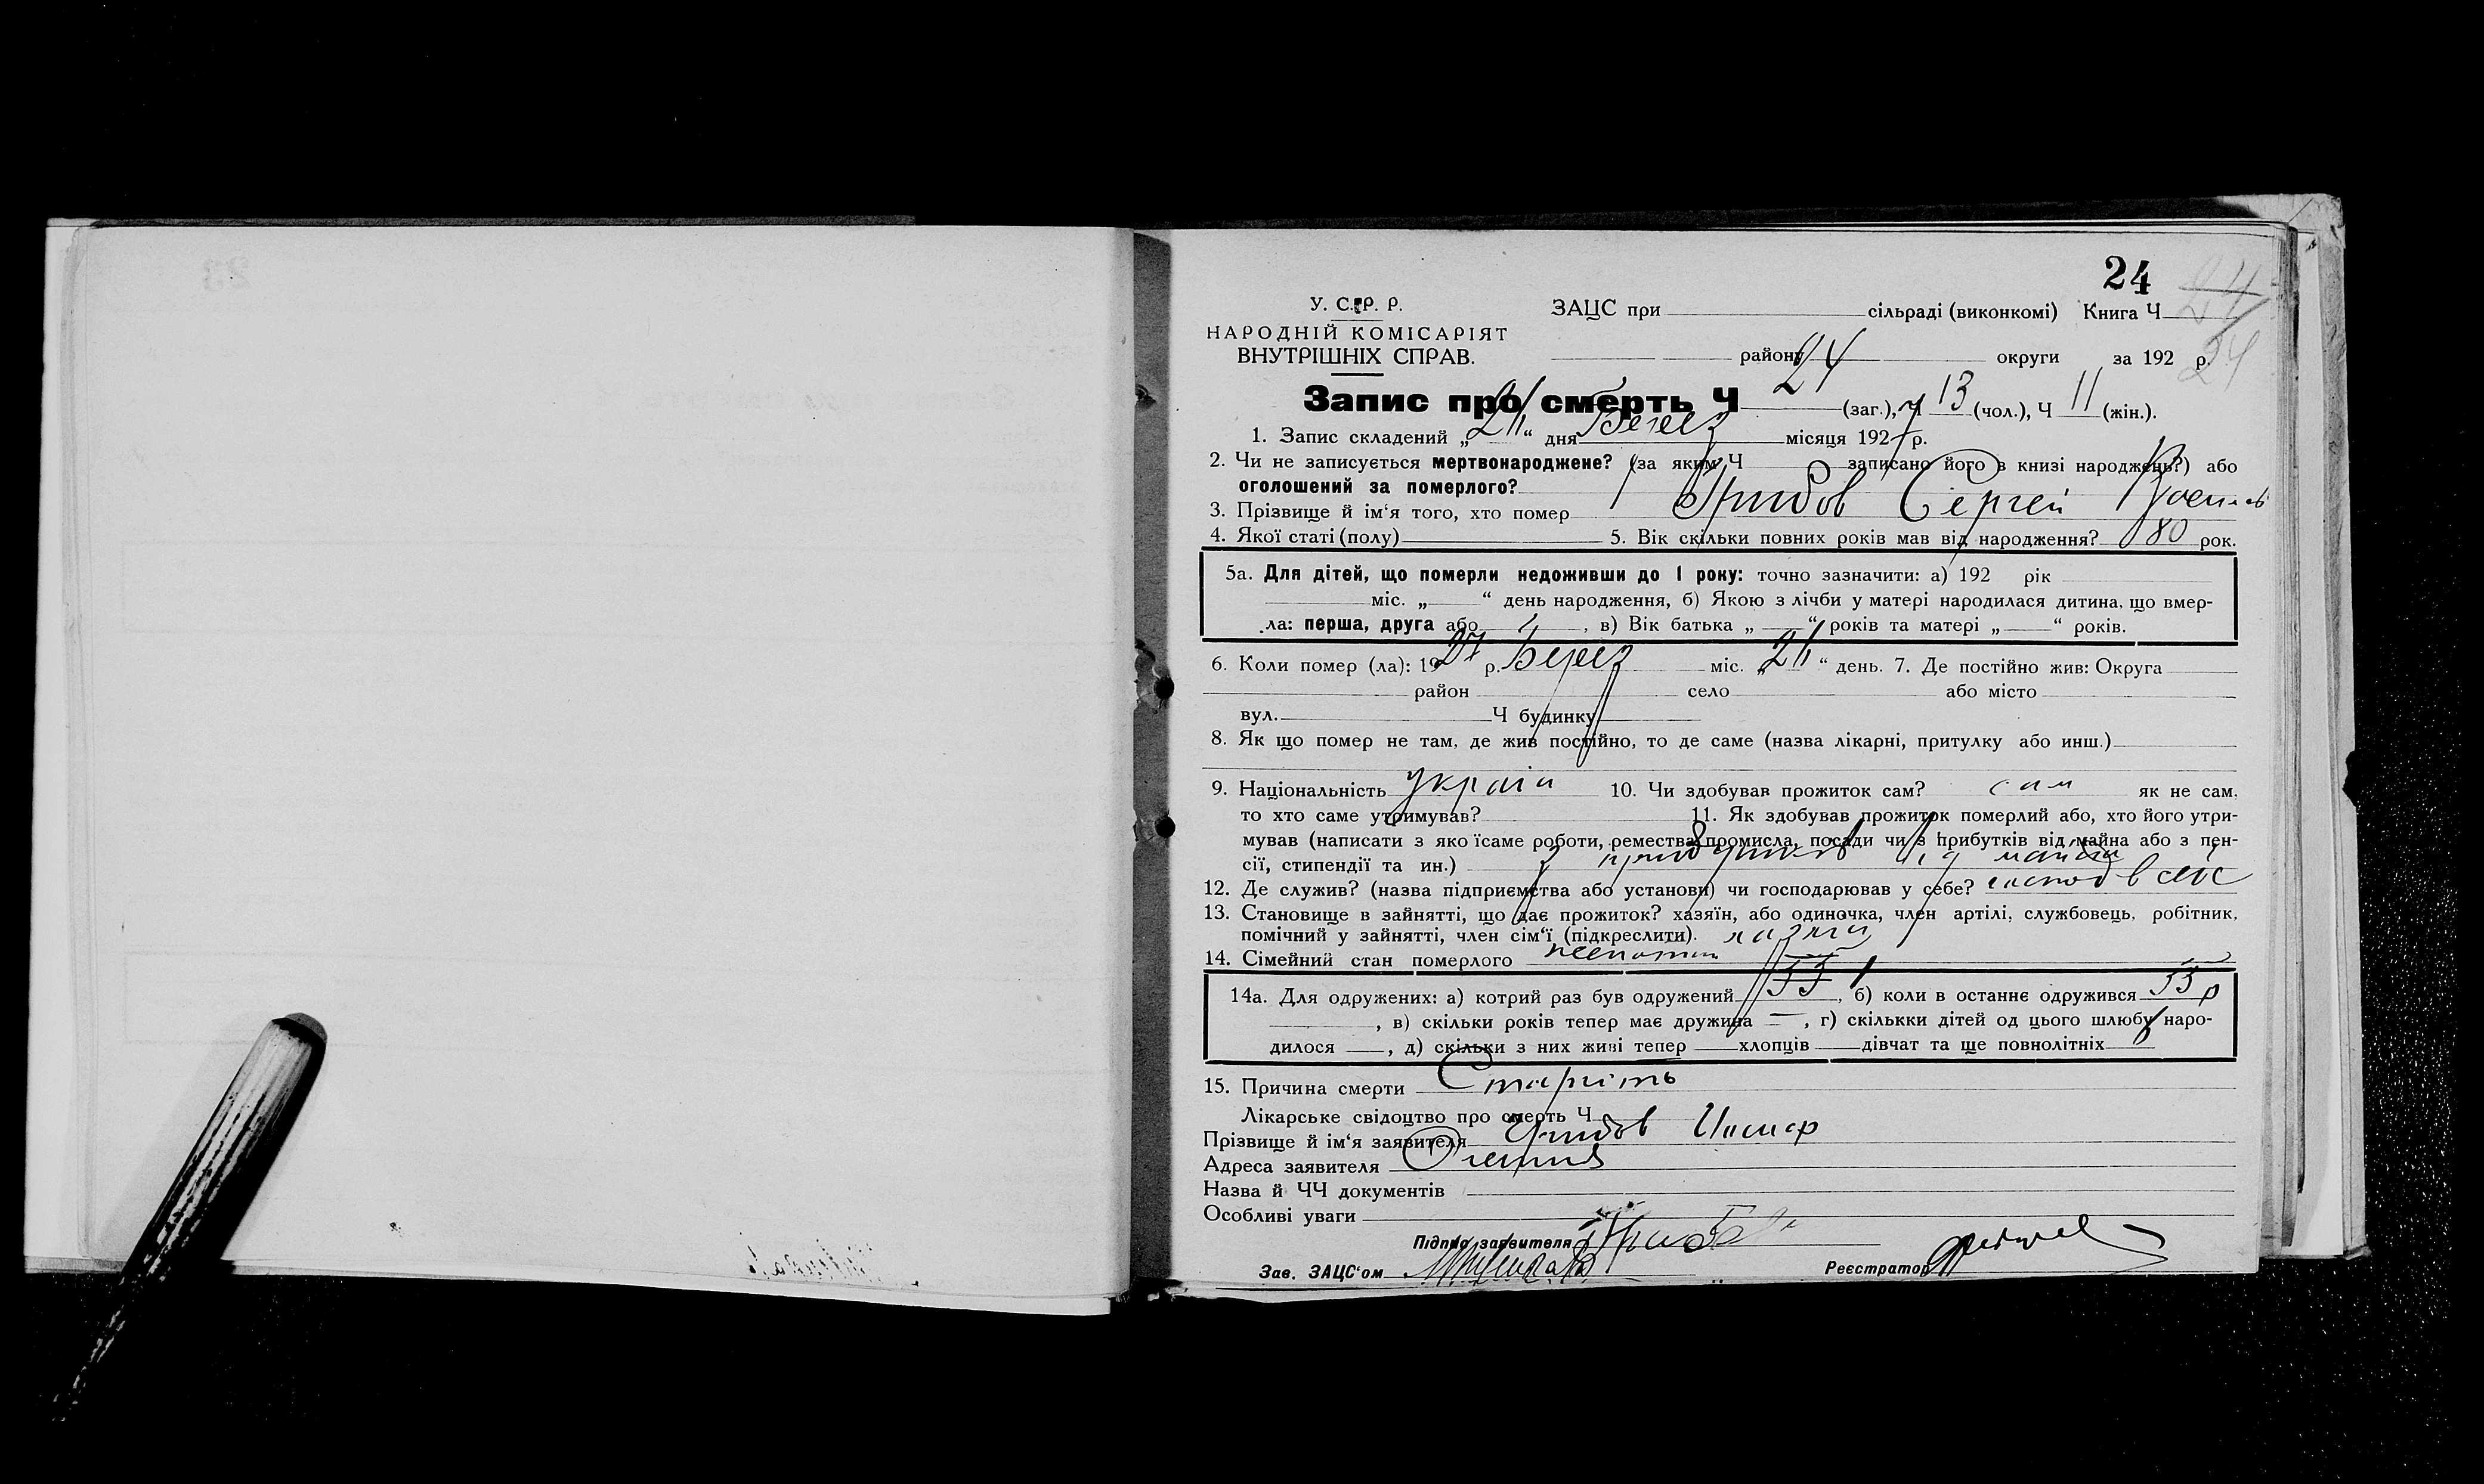 24
У. С. Р. Р. ЗАЦС при сільраді (виконкомі) Книга Ч 24
НАРОДНІЙ КОМІСАРІЯТ
ВНУТРІШНІХ СПРАВ. району округи за 192 р. 24
Запис про смерть Ч 24 (заг.), Ч 13 (чол.), Ч 11 (жін.).
1. Запис складений „24“ дня Берез місяця 1927 р.
2. Чи не записується мертвонароджене? (за яким Ч записано його в книзі народжень?) або
оголошений за померлого?
3. Прізвище й ім‘я того, хто помер Грибов Сергей
4. Якої статі (полу) 5. Вік скільки повних років мав від народження? 80 рок.
5а. Для дітей, що померли недоживши до 1 року: точно зазначити: а) 192 рік
міс. „ “ день народження, б) Якою з лічби у матері народилася дитина, що вмер-
ла: перша, друга або , в) Вік батька „ “ років та матері „ “ років.
6. Коли помер (ла): 1927 р. Берез міс. „24“ день. 7. Де постійно жив: Округа
район село або місто
вул. Ч будинку
8. Як що помер не там, де жив постійно, то де саме (назва лікарні, притулку або инш.)
9. Національність україн 10. Чи здобував прожиток сам? сам як не сам,
то хто саме утримував? 11. Як здобував прожиток померлий або, хто його утри-
мував (написати з яко їсаме роботи, ремества, промисла, посади чи з прибутків від майна або з пен-
сії, стипендії та ин.) з прибутков від майна
12. Де служив? (назва підприємства або установи) чи господарював у себе? господ в себе
13. Становище в зайнятті, що дає прожиток? хазяїн, або одиночка, член артілі, службовець, робітник,
помічний у зайнятті, член сім‘ї (підкреслити). хазяїн
14. Сімейний стан померлого
14а. Для одружених: а) котрий раз був одружений 1, б) коли в останнє одружився 55 р
, в) скільки років тепер має дружина — , г) скількки дітей од цього шлюбу наро-
дилося , д) скільки з них живі тепер хлопців дівчат та ще повнолітніх
15. Причина смерти Старість
Лікарське свідоцтво про смерть Ч
Прізвище й ім‘я заявителя Грибов
Адреса заявителя
Назва й ЧЧ документів
Особливі уваги
Підпис заявителя
Зав. ЗАЦС‘ом Реєстратор